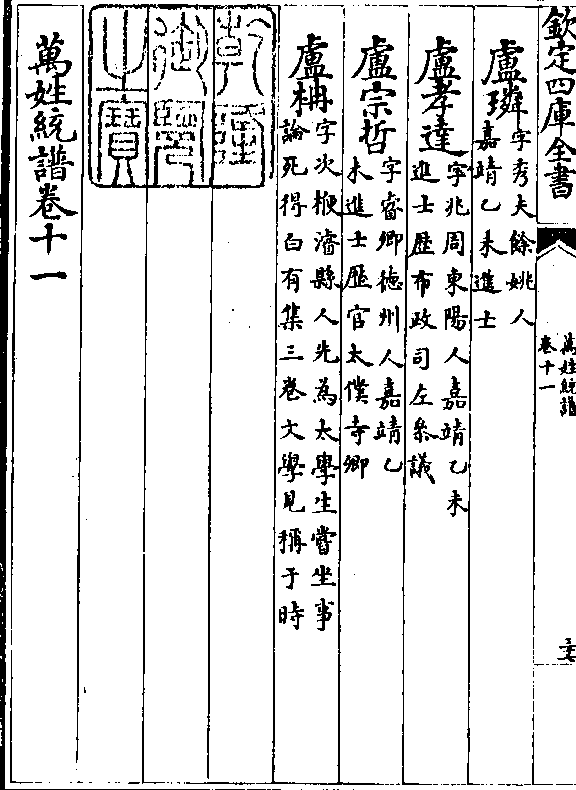 欽定四庫全書
萬姓統譜
卷十一
盧璘字秀夫餘姚人
嘉靖乙未進士
盧孝達字兆周東陽人嘉靖乙未
進士歴布政司左叅議
盧宗哲字睿卿徳州人嘉靖乙
未進士歴官太僕寺卿
盧柟字次楩濬縣人先為太學生嘗坐事
論死得白有集三卷文學見稱于時
乾隆
御覽
之寶
萬姓統譜卷十一